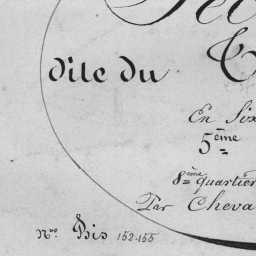 dite du
En Six
5ème
8me quartier
Par Cheva
nos. Bis 152-155